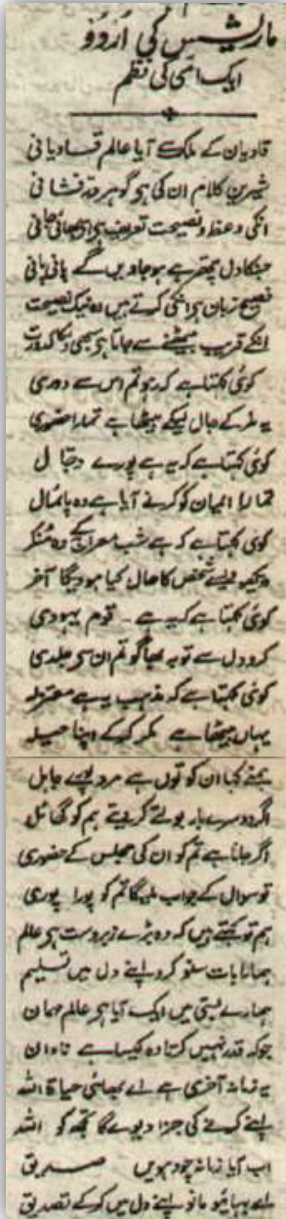 ماریشس کی اُردُو
ایک امّی کی نظم
قادیان کے ملک آیا عالم قادیانی
شیریں کلام ان کی ہی گوہر قدفشانی
انکی وعظ و نصیحت تعریف ہی
جنکا دل پتھر ہے ہو جاویں گے پانی پانی
فصیح زبان ہی انکی کرتے ہیں وہ نیک نصیحت
انکے قریب بیٹھنے سے جاتا ہی سبھی کدورت
کوئی کہتا ہے کہ رہو تم اس سے دوری
یہ مکر کے جال لیکے بیٹھا ہے تمہارا حضوری
کوئی کہتا ہے کہ یہ ہے پورے دجال
تمہارا ایمان کو کرنے آیا ہے وہ پائمال
کوئی کہتا ہے کہ ہے شب معراج کے وہ منکر
دیکھو ایسے شخص کا حال کیا ہوویگا آخر
کوئی کہتا ہے کہ یہ ہے ۔ قوم یہودی
کرو دل سے توبہ بھاگو تم ان سی جلدی
کوئی کہتا ہے کہ مذہب ہے معتزلہ
یہاں بیٹھا ہے مکر کرکے اپنا حیلہ
ہمنے کہا ان کو توں ہے مرد جاہل
اگر دوسرے بار بولے کر دیتے ہم کو گھائل
اگر جانا ہے تم کو ان کی مجلس کے حضوری
تو سوال کے جواب ملیگا تم کو پورا پوری
ہم تو کہتے ہیں کہ وہ بڑے زبردست ہی عالم
ہمارا بات سنو کرو اپنے دل میں تسلیم
ہمارے بستی میں ایک آیا ہی عالم مہمان
جو کہ قدر نہیں کرتا وہ کیسا ہے نادان
یہ زمانہ آخری ہے اے بھائی حیاۃ اللہ
اپنے کئے کی جزا دیوے گا تجھ کو اللہ
اب آیا زمانہ چودہویں صدیق
اے بھائیو مانو اپنے دل میں کرکے تصدیق